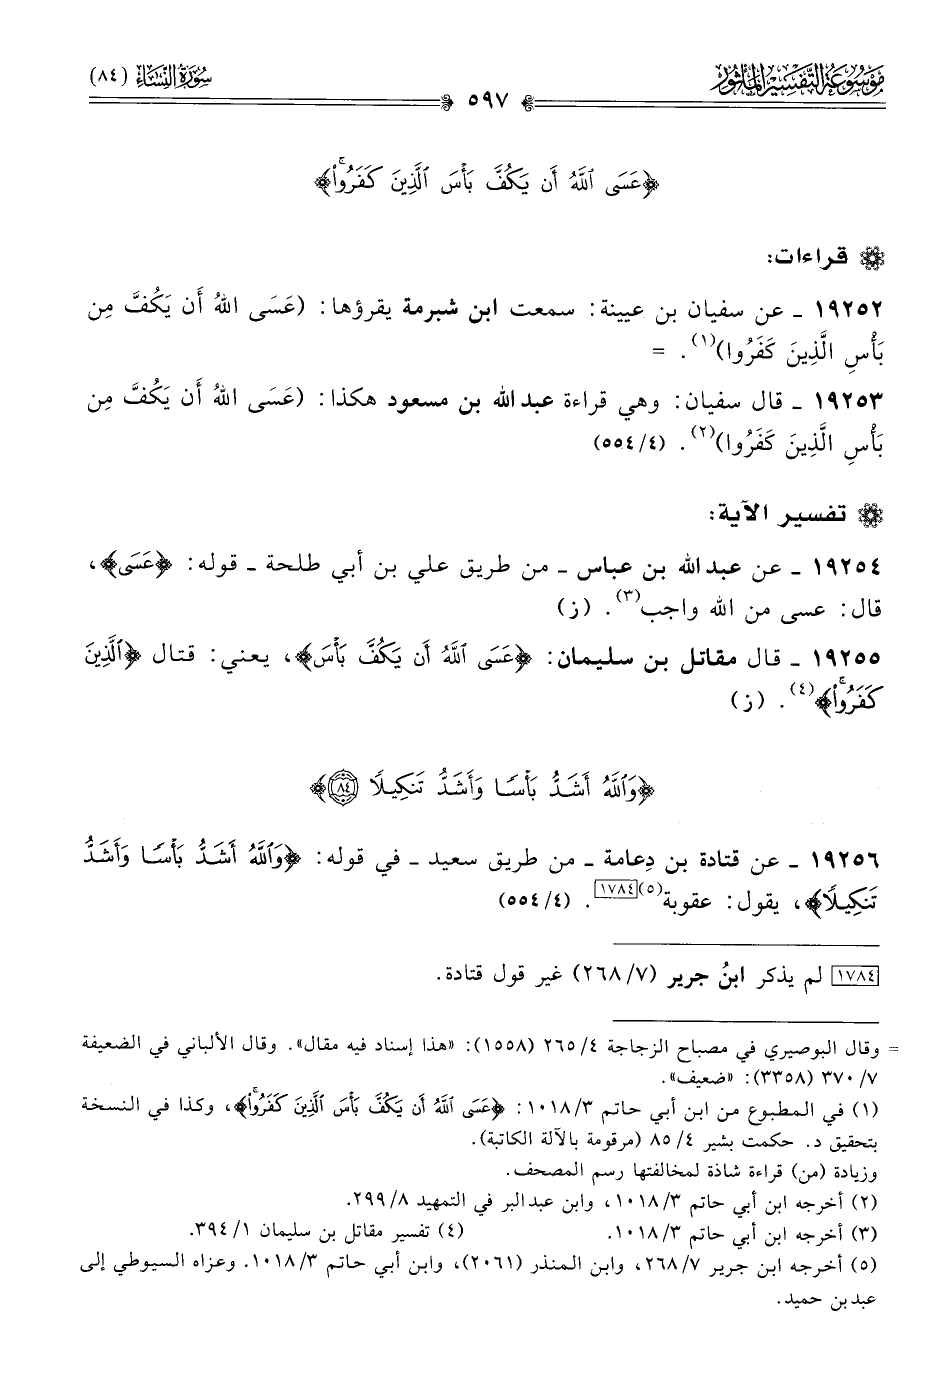 مَوْسُوعَةُ التَّفْسِيرِ المَأْثُور
سُورَةُ النِّسَاءِ (٨٤)
٥٩٧
﴿عَسَى ٱللَّهُ أَن يَكُفَّ بَأْسَ ٱلَّذِينَ كَفَرُوا۟ۚ﴾
قراءات:
١٩٢٥٢ ـ عن سفيان بن عيينة: سمعت ابن شبرمة يقرؤها: (عَسَى اللهُ أَن يَكُفَّ مِن
بَأْسِ الَّذِينَ كَفَرُوا)(١). =
١٩٢٥٣ ـ قال سفيان: وهي قراءة عبد الله بن مسعود هكذا: (عَسَى اللهُ أَن يَكُفَّ مِن
بَأْسِ الَّذِينَ كَفَرُوا)(٢). (٤/ ٥٥٤)
تفسير الآية:
١٩٢٥٤ ـ عن عبد الله بن عباس ـ من طريق علي بن أبي طلحة ـ قوله: ﴿عَسَى﴾،
قال: عسى من الله واجب(٣). (ز)
١٩٢٥٥ ـ قال مقاتل بن سليمان: ﴿عَسَى ٱللَّهُ أَن يَكُفَّ بَأْسَ﴾، يعني: قتال ﴿ٱلَّذِينَ
كَفَرُوا۟ۚ﴾(٤). (ز)
﴿وَٱللَّهُ أَشَدُّ بَأْسًا وَأَشَدُّ تَنكِيلًا ٨٤﴾
١٩٢٥٦ ـ عن قتادة بن دِعامة ـ من طريق سعيد ـ في قوله: ﴿وَٱللَّهُ أَشَدُّ بَأْسًا وَأَشَدُّ
تَنكِيلًا﴾، يقول: عقوبة(٥)[١٧٨٤]. (٤/ ٥٥٤)
[١٧٨٤] لم يذكر ابنُ جرير (٧/ ٢٦٨) غير قول قتادة.
= وقال البوصيري في مصباح الزجاجة ٤/ ٢٦٥ (١٥٥٨): «هذا إسناد فيه مقال». وقال الألباني في الضعيفة
٧/ ٣٧٠ (٣٣٥٨): «ضعيف».
(١) في المطبوع من ابن أبي حاتم ٣/ ١٠١٨: ﴿عَسَى ٱللَّهُ أَن يَكُفَّ بَأْسَ ٱلَّذِينَ كَفَرُوا۟ۚ﴾، وكذا في النسخة
بتحقيق د. حكمت بشير ٤/ ٨٥ (مرقومة بالآلة الكاتبة).
وزيادة (من) قراءة شاذة لمخالفتها رسم المصحف.
(٢) أخرجه ابن أبي حاتم ٣/ ١٠١٨، وابن عبد البر في التمهيد ٨/ ٢٩٩.
(٣) أخرجه ابن أبي حاتم ٣/ ١٠١٨. (٤) تفسير مقاتل بن سليمان ١/ ٣٩٤.
(٥) أخرجه ابن جرير ٧/ ٢٦٨، وابن المنذر (٢٠٦١)، وابن أبي حاتم ٣/ ١٠١٨. وعزاه السيوطي إلى
عبد بن حميد.